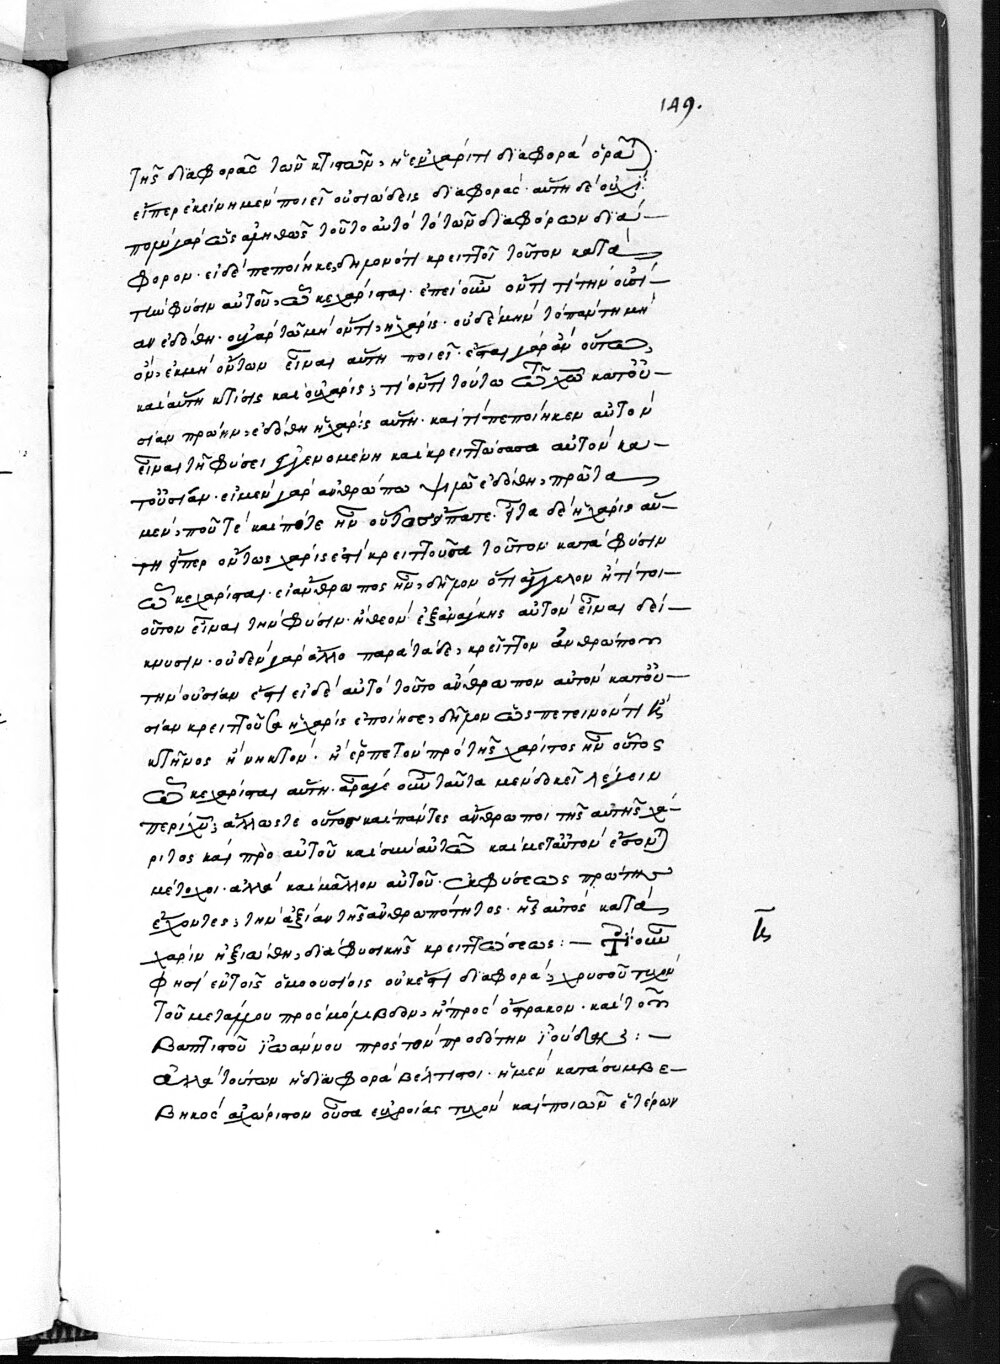 149.
τῆς διαφορᾶς τῶν κτιστῶν, ἢ ἐν χάριτι διαφορὰ ὁρᾶται.
εἴπερ ἐκείνη μὲν ποιεῖ οὐσιώδεις διαφοράς· αὕτη δὲ οὐχί·
γὰρ ὡς ἀληθῶς τοῦτο αὐτὸ τὸ τῶν διαφόρων διά-
φορον. εἰ δὲ πεποίηκε, δῆλον ὅτι κρεῖττον τοῦτον κατὰ
τὴν φύσιν αὐτοῦ, ᾧ κεχάρισται. ἐπεὶ οὖν ὄντι τινὶ τὴν οὐσί-
αν ἐδόθη· οὐ γὰρ τῷ μὴ ὄντι, ἡ χάρις· οὐδὲ μὴν τὸ πάντη μὴ
ὂν, ἐκ μὴ ὄντων εἶναι αὕτη ποιεῖ· ἔσται γὰρ ἂν οὕτως,
καὶ αὕτη κτίσις καὶ οὐ χάρις, τί ὄντι τούτῳ τῷ κατ' οὐ-
σίαν πρώην, ἐδόθη ἡ χάρις αὕτη· καὶ τί πεποίηκεν αὐτὸν
εἶναι τῇ φύσει γενομένη καὶ κρειττώσασα αὐτὸν κα-
τ' οὐσίαν· εἰ μὲν γὰρ ἀνθρώπῳ ψιλῷ ἐδόθη, πρῶτα
μὲν, ποῦ τὲ καὶ πότε ἦν οὗτος εἴπατε. εἶτα δὲ ἡ χάρις αὕ-
τη εἴπερ ὄντως χάρις ἐστὶ κρειττοῦσα τοῦτον κατὰ φύσιν
ᾧ κεχάρισται. εἰ ἄνθρωπος ἦν, δῆλον ὅτι ἄγγελον ἤ τι τοι-
οῦτον εἶναι τὴν φύσιν· ἢ θεὸν ἐξ ἀνάγκης αὐτὸν εἶναι δεί-
κνυσιν· οὐδὲν γὰρ ἄλλο παρὰ τάδε, κρεῖττον ἀνθρώπου
τὴν οὐσίαν ἐστὶ εἰ δὲ αὐτὸ τοῦτο ἄνθρωπον αὐτὸν κατ' οὐ-
σίαν κρειττοῦσα ἡ χάρις ἐποίησε, δῆλον ὡς πετεινὸν τί ἢ
κτῆνος ἢ νηκτὸν· ἢ ἑρπετὸν πρὸ τῆς χάριτος ἦν οὗτος
ᾧ κεχάρισται αὕτη. ἆρά γε οὖν ταῦτα μὲν δοκεῖ λέγειν
περὶ χῦ, ἄλλως τε οὗτοι καὶ πάντες ἄνθρωποι τῆς αὐτῆς χά-
ριτος καὶ πρὸ αὐτοῦ καὶ σὺν αὐτῷ καὶ μετ' αὐτὸν ἔσονται
μέτοχοι· ἀλλὰ καὶ μᾶλλον αὐτοῦ· ἐκ φύσεως πρώτης
ἔχοντες, τὴν ἀξίαν τῆς ἀνθρωπότητος· ἧς αὐτὸς κατὰ
χάριν ἠξιώθη, διὰ φυσικῆς κρειττώσεως:— Τί οὖν
φησὶ ἐν τοῖς ὁμοουσίοις οὐκ ἔστι διαφορὰ, χρυσοῦ τυχὸν
τοῦ μετάλλου πρὸς μόλιβδον, ἢ πρὸς ὄστρακον· καὶ τοῦ
βαπτιστοῦ ἰωάννου πρὸς τὸν προδότην ἰούδαν:—
ἀλλὰ τούτων ἡ διαφορὰ βέλτιστοι· ἡ μὲν κατὰ συμβε-
βηκὸς ἀχώριστον οὖσα εὐχροίας τυχὸν καὶ ποιῶν ἑτέρων